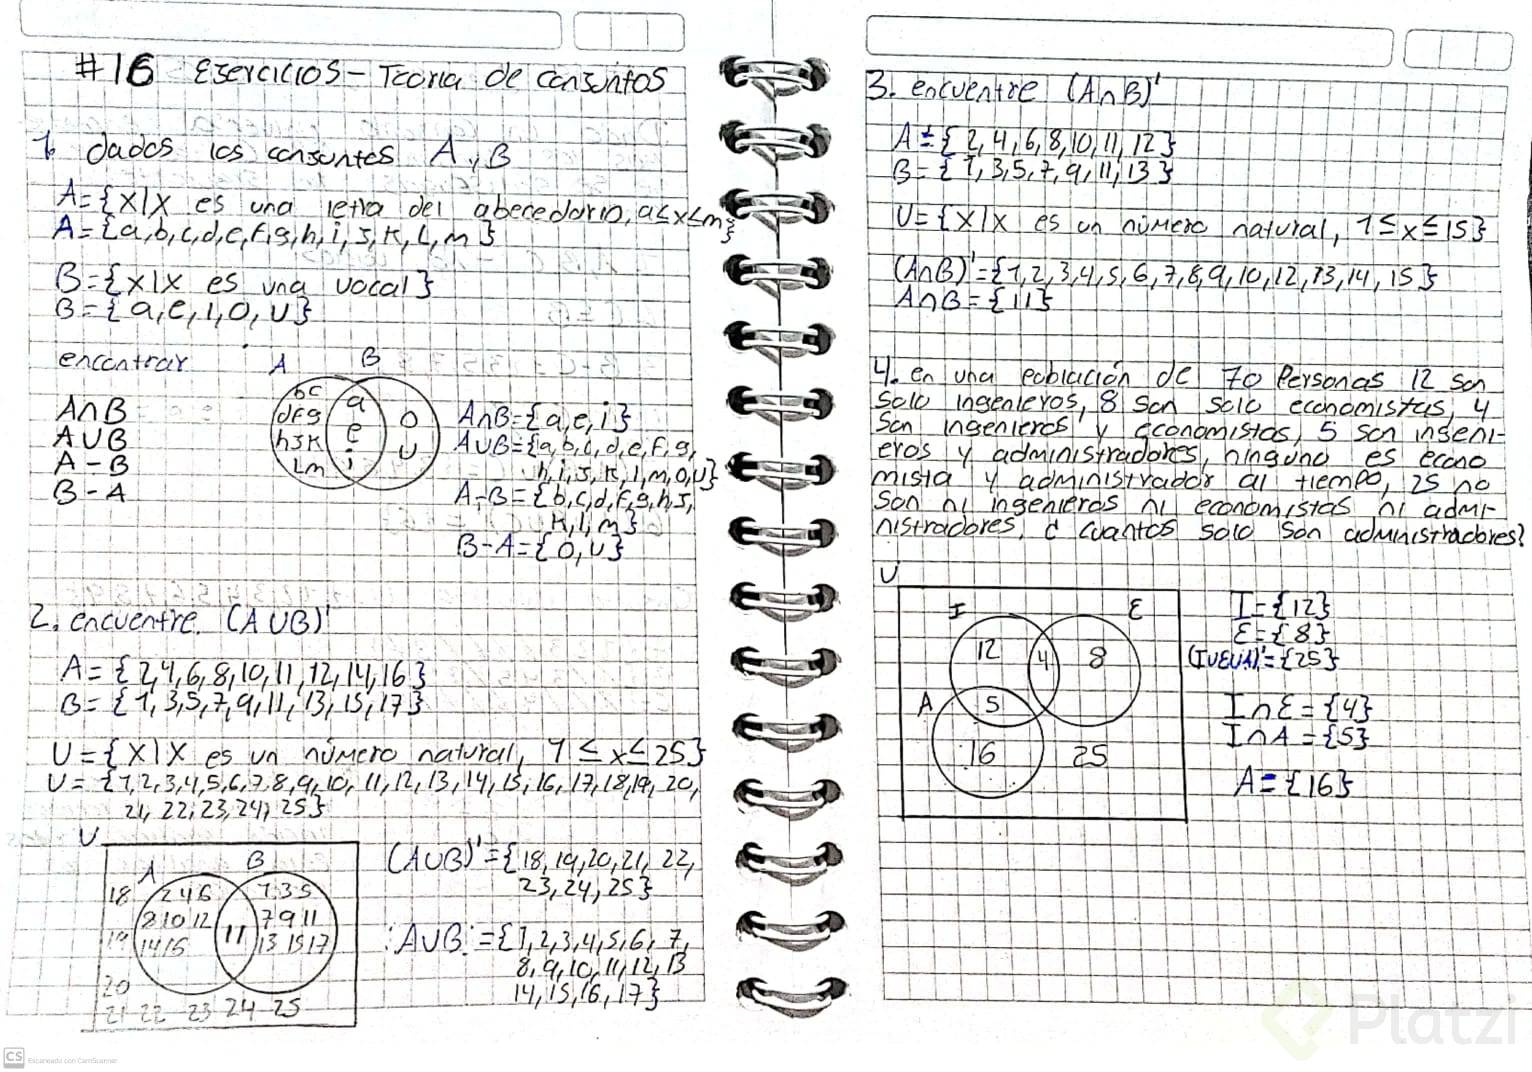 #16 Ejercicios - Teoria de conjuntos
1. dados los conjuntos A y B
A={x|x es una letra del abecedario, a≤x≤m}
A={a,b,c,d,e,f,g,h,i,j,k,l,m}
B={x|x es una vocal}
B={a,e,i,o,u}
encontrar
A∩B
A∪B
A-B
B-A
A B
bc
dfg
hjk
lm
a
e
i
o
u
A∩B={a,e,i}
A∪B={a,b,c,d,e,f,g,
h,i,j,k,l,m,o,u}
A-B={b,c,d,f,g,h,j,
k,l,m}
B-A={o,u}
2. encuentre (A∪B)'
A={2,4,6,8,10,11,12,14,16}
B={1,3,5,7,9,11,13,15,17}
U={x|x es un número natural, 1≤x≤25}
U={1,2,3,4,5,6,7,8,9,10,11,12,13,14,15,16,17,18,19,20,
21,22,23,24,25}
U
A B
18 246 135
8 10 12 11 7 9 11
19 14 16 13 15 17
20
21 22 23 24 25
(A∪B)'={18,19,20,21,22,
23,24,25}
A∪B={1,2,3,4,5,6,7,
8,9,10,11,12,13
14,15,16,17}
3. encuentre (A∩B)'
A={2,4,6,8,10,11,12}
B={1,3,5,7,9,11,13}
U={x|x es un número natural, 1≤x≤15}
(A∩B)'={1,2,3,4,5,6,7,8,9,10,12,13,14,15}
A∩B={11}
4. en una población de 70 Personas 12 son
solo ingenieros, 8 son solo economistas, 4
son ingenieros y economistas, 5 son ingeni-
eros y administradores, ninguno es econo
mista y administrador al tiempo, 25 no
son ni ingenieros ni economistas ni admi-
nistradores, ¿ cuantos solo son administradores?
U
I E
12 4 8
A 5
16 25
I={12}
E={8}
(I∪E∪A)'={25}
I∩E={4}
I∩A={5}
A={16}
Platzi
CS Escaneado con CamScanner